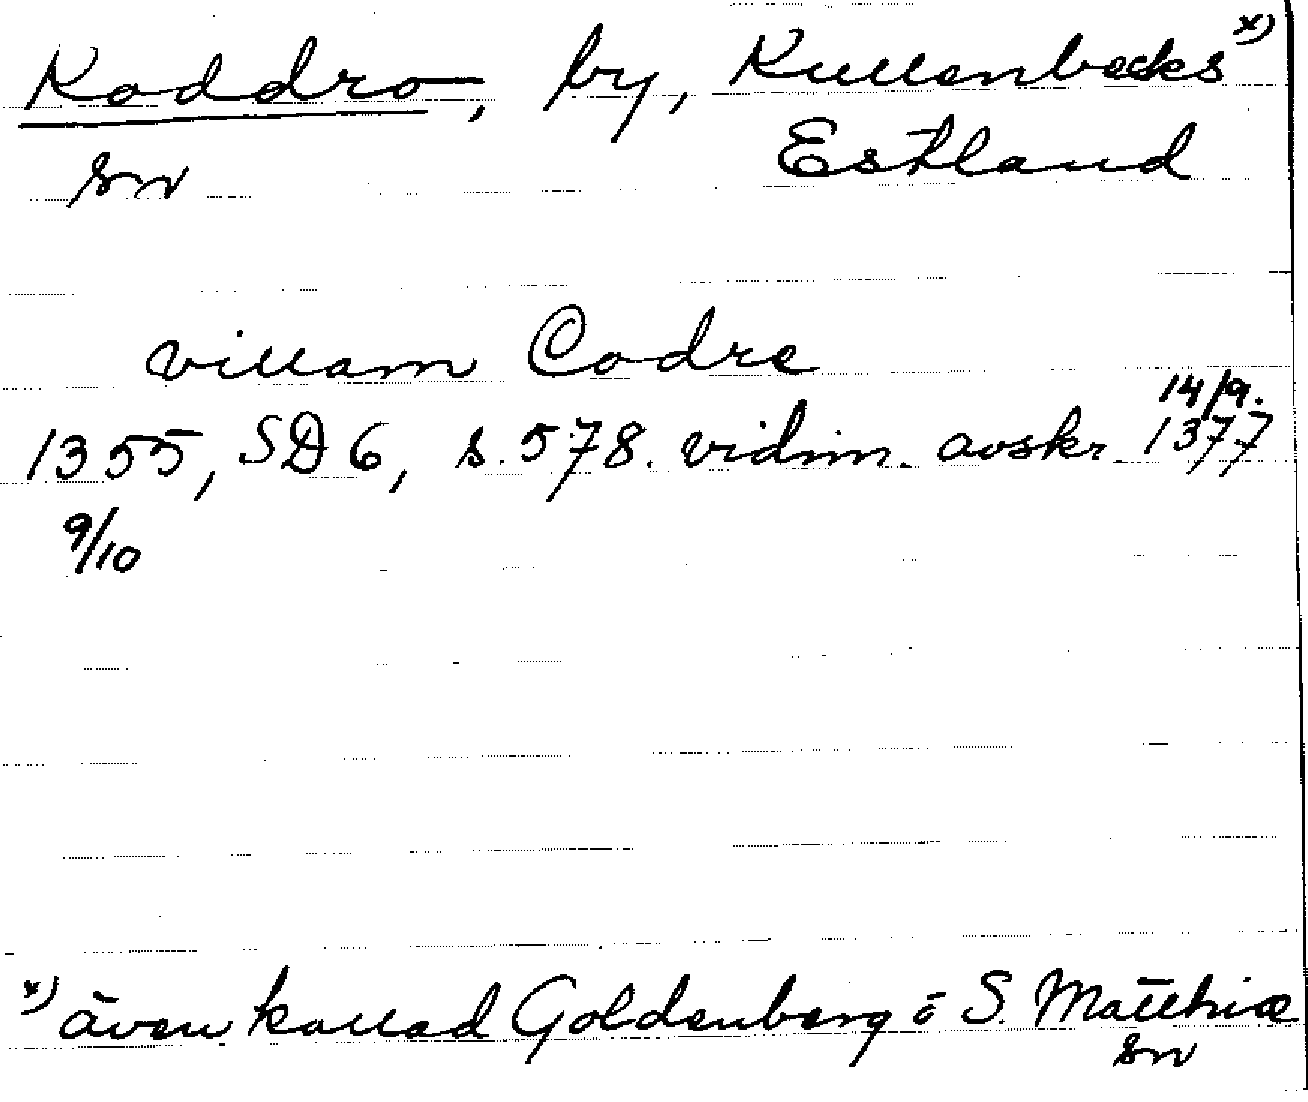 Koddro, by, Kullenbecks x)
sn Estland
villam Codre
14/9.
1355, SD 6, s. 578. vidim. avskr. 1377
9/10
x) även kallad Goldenberg i S. Matthiæ
sn